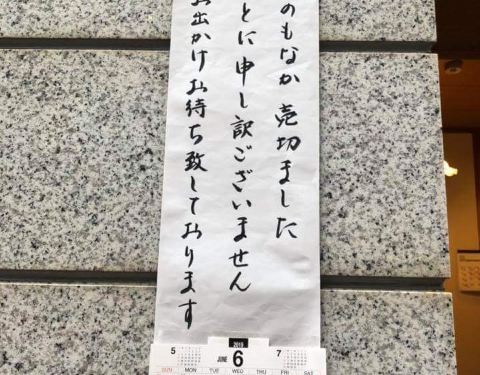 のもなか 売切ました
とに申し訳ございません
お出かけお待ち致しております
2019
5 JUNE 6 7
SUN MON TUE WED THU FRI SAT